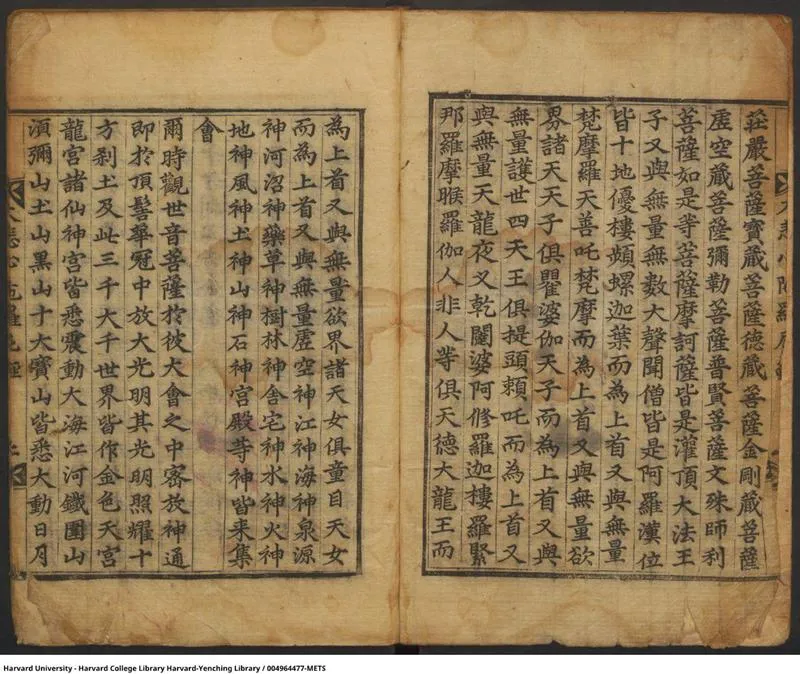 莊嚴菩薩寶藏菩薩德藏菩薩金剛藏菩薩
虛空藏菩薩彌勒菩薩普賢菩薩文殊師利
菩薩如是等菩薩摩訶薩皆是灌頂大法王
子又與無量無數大聲聞僧皆是阿羅漢位
皆十地優樓頻螺迦葉而為上首又與無量
梵摩羅天善吒梵摩而為上首又與無量欲
界諸天天子俱瞿婆伽天子而為上首又與
無量護世四天王俱提頭賴吒而為上首又
與無量天龍夜叉乾闥婆阿修羅迦樓羅緊
那羅摩睺羅伽人非人等俱天德大龍王而
為上首又與無量欲界諸天女俱童目天女
而為上首又與無量虛空神江神海神泉源
神河沼神藥草神樹林神舍宅神水神火神
地神風神土神山神石神宮殿等神皆来集
會
爾時觀世音菩薩扵彼大會之中密放神通
即扵頂髻華冠中放大光明其光明照耀十
方刹土及此三千大千世界皆作金色天宮
龍宮諸仙神宮皆悉震動大海江河鐵圍山
湏彌山土山黒山十大寶山皆悉大動日月
大悲心陁羅尼經
二
Harvard University - Harvard College Library Harvard-Yenching Library / 004964477-METS